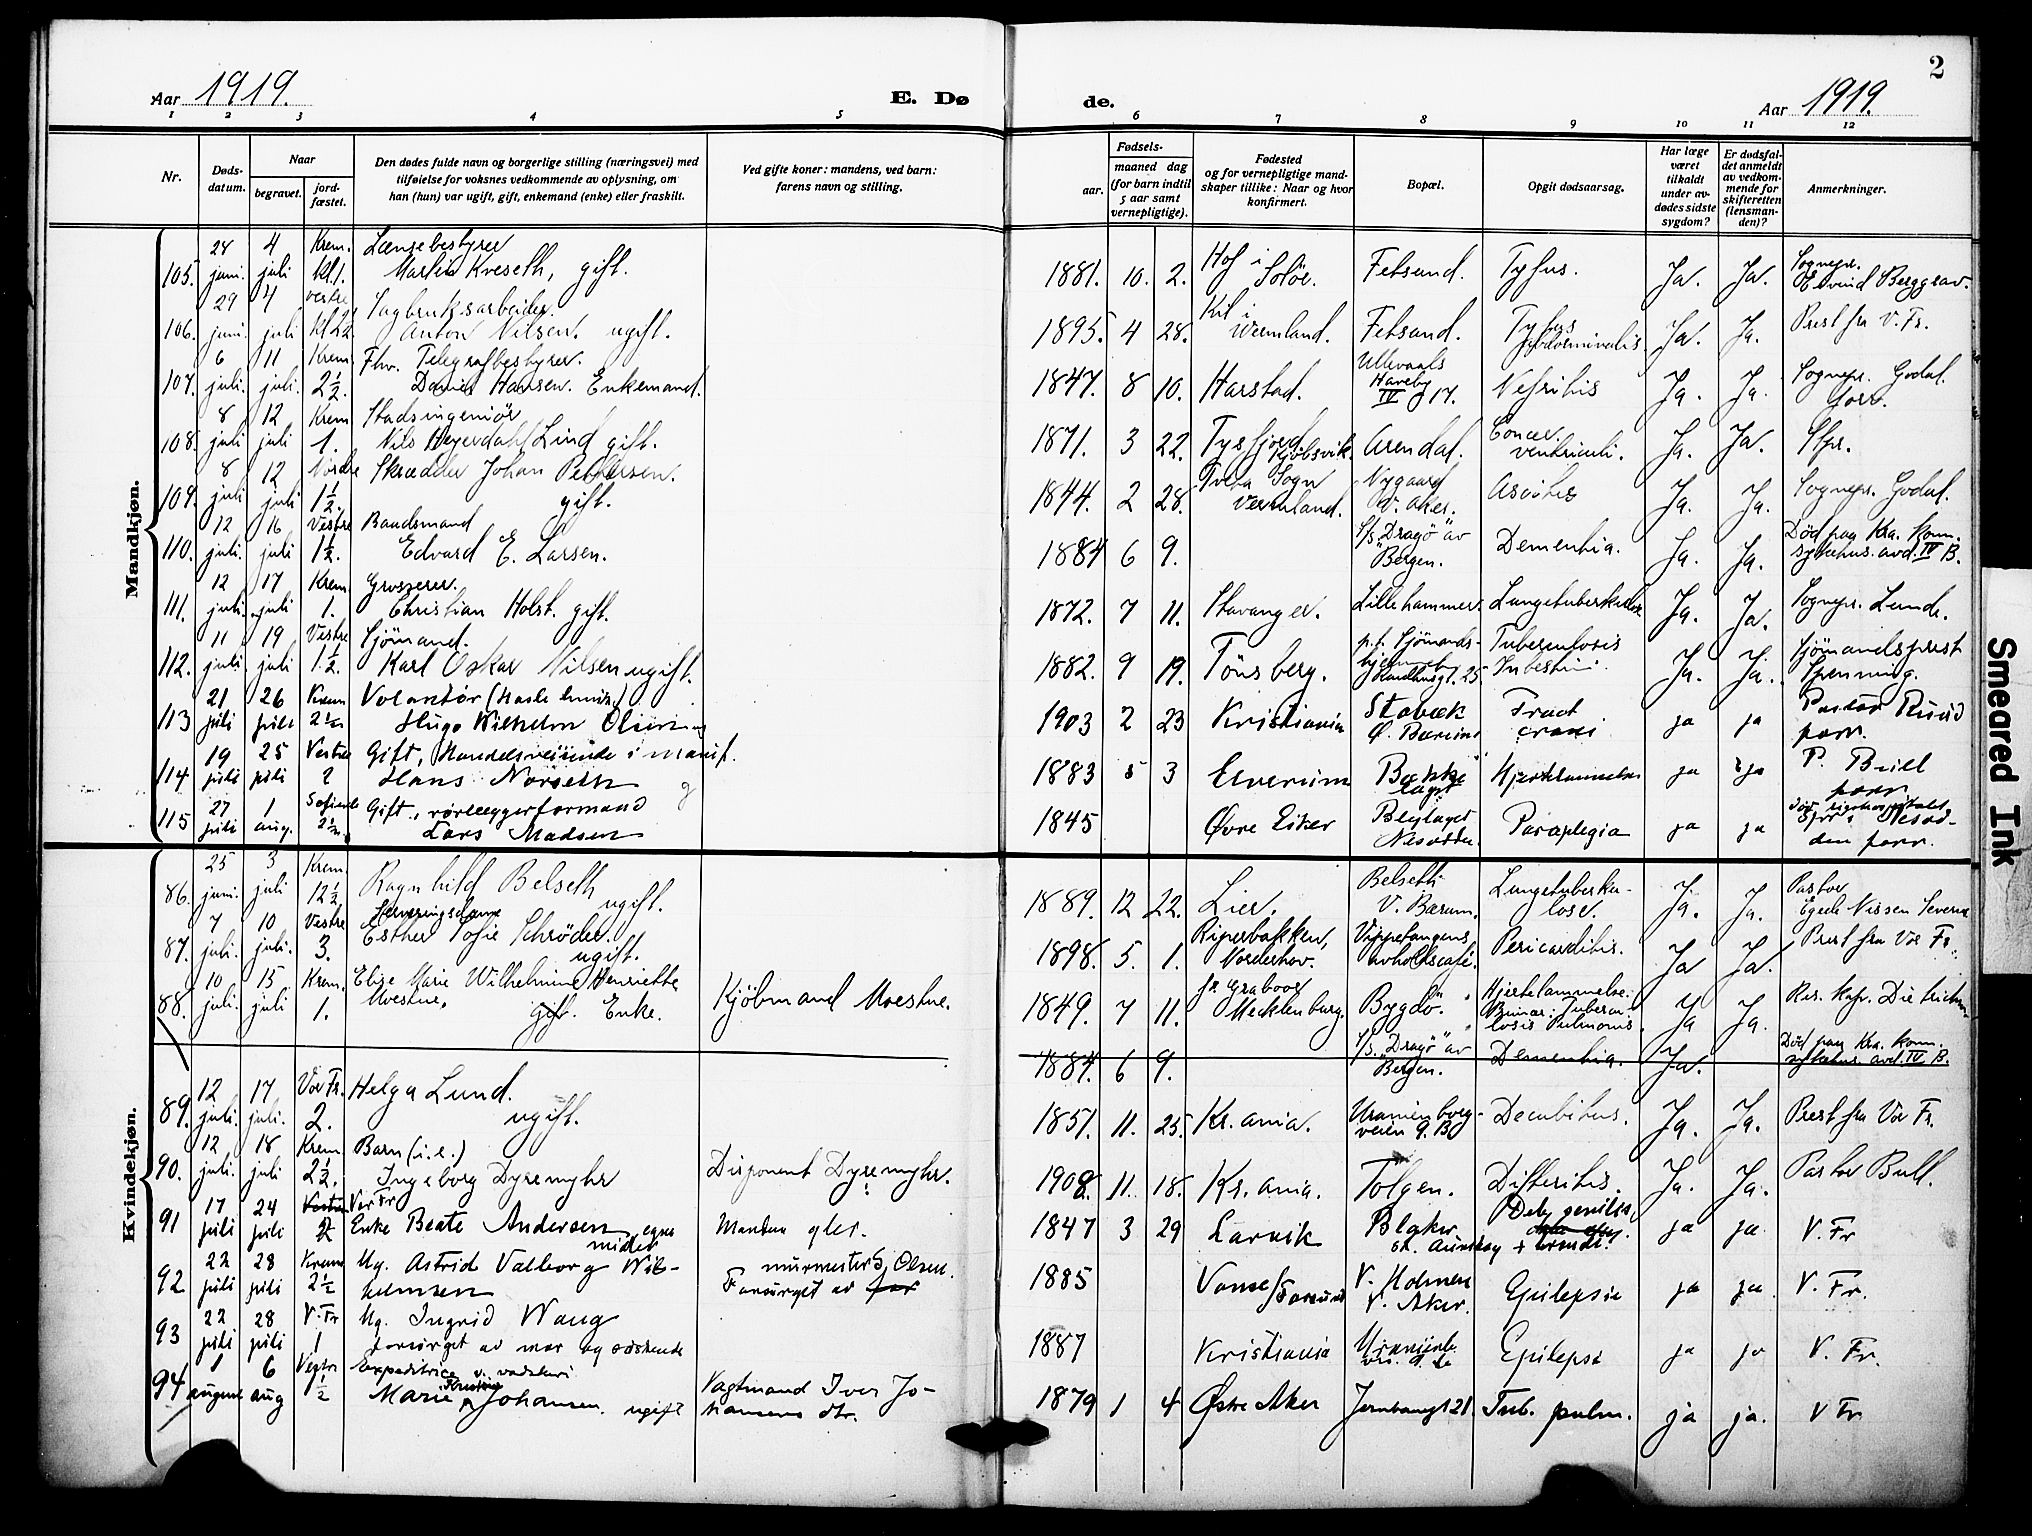 Aar 1919.
E. Dø
de.
Aar 1919.
2
1 2 3 4 5 6 7 8 9 10 11 12
Nr.
Døds-
datum.
Naar
begravet.
jord-
fæstet.
Den dødes fulde navn og borgerlige stilling (næringsvei) med
tilføielse for voksnes vedkommende av oplysning, om
han (hun) var ugift, gift, enkemand (enke) eller fraskilt.
Ved gifte koner: mandens, ved barn:
farens navn og stilling.
Fødsels-
aar.
maaned dag
(for barn indtil
5 aar samt
vernepligtige).
Fødested
og for vernepligtige mand-
skaper tillike: Naar og hvor
konfirmert.
Bopæl.
Opgit dødsaarsag.
Har læge
været
tilkaldt
under av-
dødes sidste
sygdom?
Er dødsfal-
det anmeldt
av vedkom-
mende for
skifteretten
(lensman-
den)?
Anmerkninger.
Mandkjøn.
28 4 Krem. Lænsebestyrer
105. juni. juli kl. 1. Martin Kveseth, gift.
1881. 10. 2. Hof i Soløe. Fetsund. Tyfus. Ja. Ja. Sognepr. Eivind Berggrav.
29 4 Vestre Sagbruksarbeider.
106. juni. juli Anton Nilsen. ugift.
1895. 4 28. Kil i Wermland. Fetsund. Ja. Ja. Prest fra V. Fr.
6 11 Krem. Fhv. Telegrafbestyrer.
107. juli. juli. 2½. Daniel Hansen. Enkemand.
1847. 8 10. Harstad. Ullevaals Haveby IV 17. Nefritis Ja. Ja. Sognepr. Godal. forr.
8 12 Krem Stadsingeniør
108. juli juli 1. Nils Heyerdahl Lind gift.
1871. 3 22. Tysfjord Kjøbsvik. Arendal. Cancer ventriculi. Ja. Ja. Spr.
8 12 Nordre Skrædder Johan Pettersen.
109. juli juli 1½. gift.
1844. 2 28. Sogn Vermland. Nygaard V. Aker. Ascites Ja. Ja. Sognepr. Godal.
12 16 Vestre Baadsmand
110. juli. juli 1½. Edvard E. Larsen.
1884 6 9. S/s "Dragö" av Bergen. Dementia. Ja. Ja. Død paa Kra. kom. sykehus. avd. IV B.
12 17 Krem Grosserer.
111. juli. juli 1. Christian Holst. gift.
1872. 7 11. Stavanger. Lillehammer. Lungetuberkulose Ja. Ja. Sognepr. Lunde.
11 19 Vestre Sjömand.
112. juli juli 1½. Karl Oskar Nilsen ugift.
1882. 9 19. Tönsberg. p.t. Sjömands- Tuberculosis Intestini. Ja. Ja. Sjömandsprest Spenning.
21 26 Krem Volontør
113 juli juli 2½ Hugo Wilhelm Olsen ug
1903 2 23 Kristiania Stabæk Ø. Bærum Fract crani ja ja Pastor Ruud forr.
19 25 Vestre Gift, Handelsreisende i manuf.
114 juli juli 2 Hans Norseth
1883 5 3 Elverum Bækkelaget Hjertelammelse ja ja P. Bull forr.
27 1 Gift, rørlæggerformand
115 juli aug. 2½ Lars Madsen
1845 Øvre Eiker Nesodden Paraplegia ja ja
Kvindekjøn.
25 3 Krem.
86. juni. juli 12½ Ragnhild Belseth ugift.
1889. 12 22. Lier. Belseth V. Bærum. Lungetuberku-
lose. Ja. Ja. Pastor Egede Nissen
7 10 Vestre Serveringsdame
87. juli. juli. 3. Esther Sofie Schrøder. ugift.
1898. 5. 1. Riperbakken, Norderhov. Vippetangens avholdscafé. Pericarditis. Ja Ja. Prest fra Vor Fr.
10 15 Krem. Elise Marie Wilhelmine Henriette
88. juli. juli 1. Moestue, gift. Enke. Kjöbmand Moestue.
1849. 7 11. Mecklenburg. Bygdö. Hjertelammelse. Tubercu-
losis Pulmonis. Ja Ja. Res. kap.
1884. 6 9. S/s. "Dragö" av Bergen. Dementia. Ja. Død paa Kra. kom. sykehus. avd. IV B.
12 17 Vor Fr. Helga Lund.
89. juli. juli. 2. ugift.
1851. 11. 25. Kr.ania. Uranienborg-
veien 9. Decubitus. Ja. Ja. Prest fra Vor Fr.
12 18 Krem Barn (i.e.)
90. juli. juli 2½. Ingeborg Dyremyhr Disponent Dyremyhr.
1908. 11. 18. Kr.ania. Tolgen. Difteritis. Ja. Ja. Pastor Bull.
17 24 Vor Fr
91 juli juli 2 Enke Beate Andersen egne midler Manden
1847 3 29 Larvik Blaker st. Aurskog ja ja V. Fr
22 28 Krem Ug. Astrid Valborg Wil-
92 juli juli 2½ helmsen Forsørget av far murmester Olsen.
1885 Vanse/Farsund V. Holmen V. Aker. Epilepsie ja ja V. Fr.
22 28 V. Fr Ug. Ingrid Waug
93 juli juli 1 forsørget av mor og søskende
1887 Kristiania Epilepsi ja ja V. Fr.
1 6 Vestre Expeditrice v. vadskeri
94 august aug 1½ Marie Johansen. ugift Vagtmand Iver Jo-
hansens dtr.
1879 1 4 Østre Aker Jernbangt 21. Tub. pulm. ja ja. V Fr
Smeared Ink